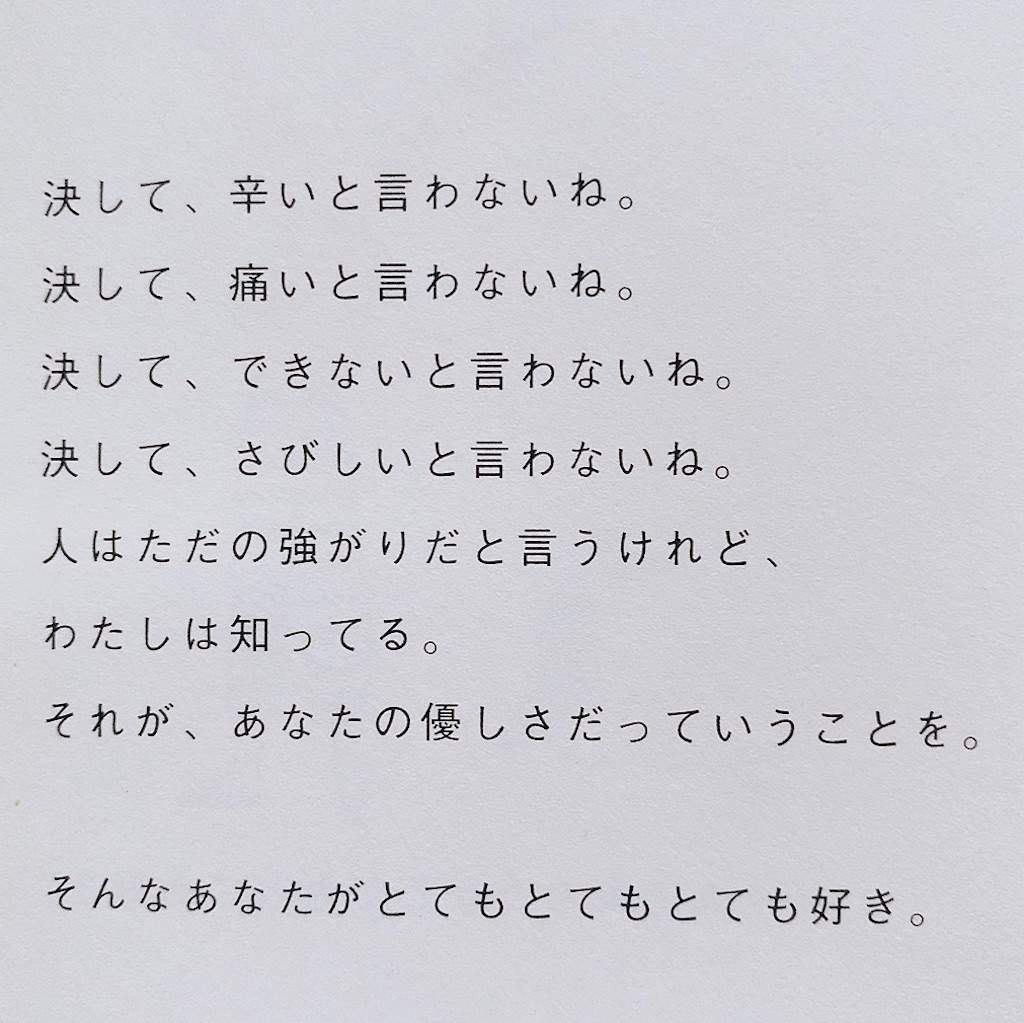 決して、辛いと言わないね。
決して、痛いと言わないね。
決して、できないと言わないね。
決して、さびしいと言わないね。
人はただの強がりだと言うけれど、
わたしは知ってる。
それが、あなたの優しさだっていうことを。
そんなあなたがとてもとてもとても好き。